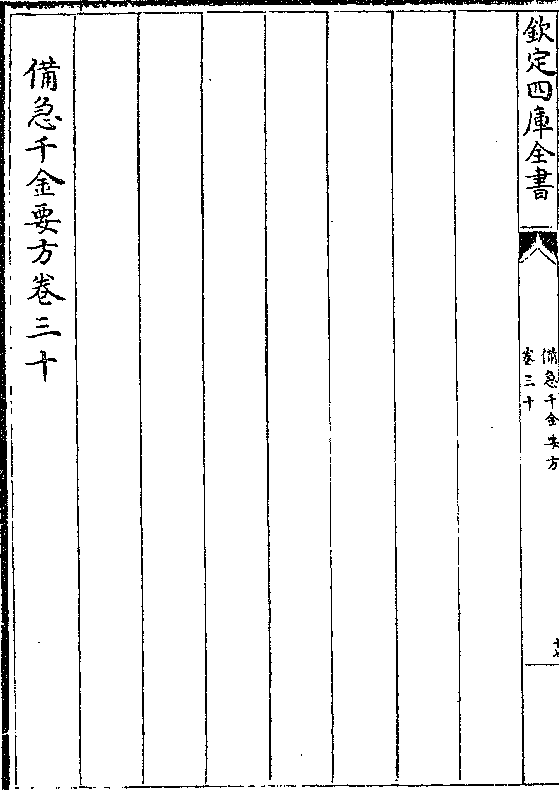 欽定四庫全書
備急千金要方
卷三十
備急千金要方卷三十